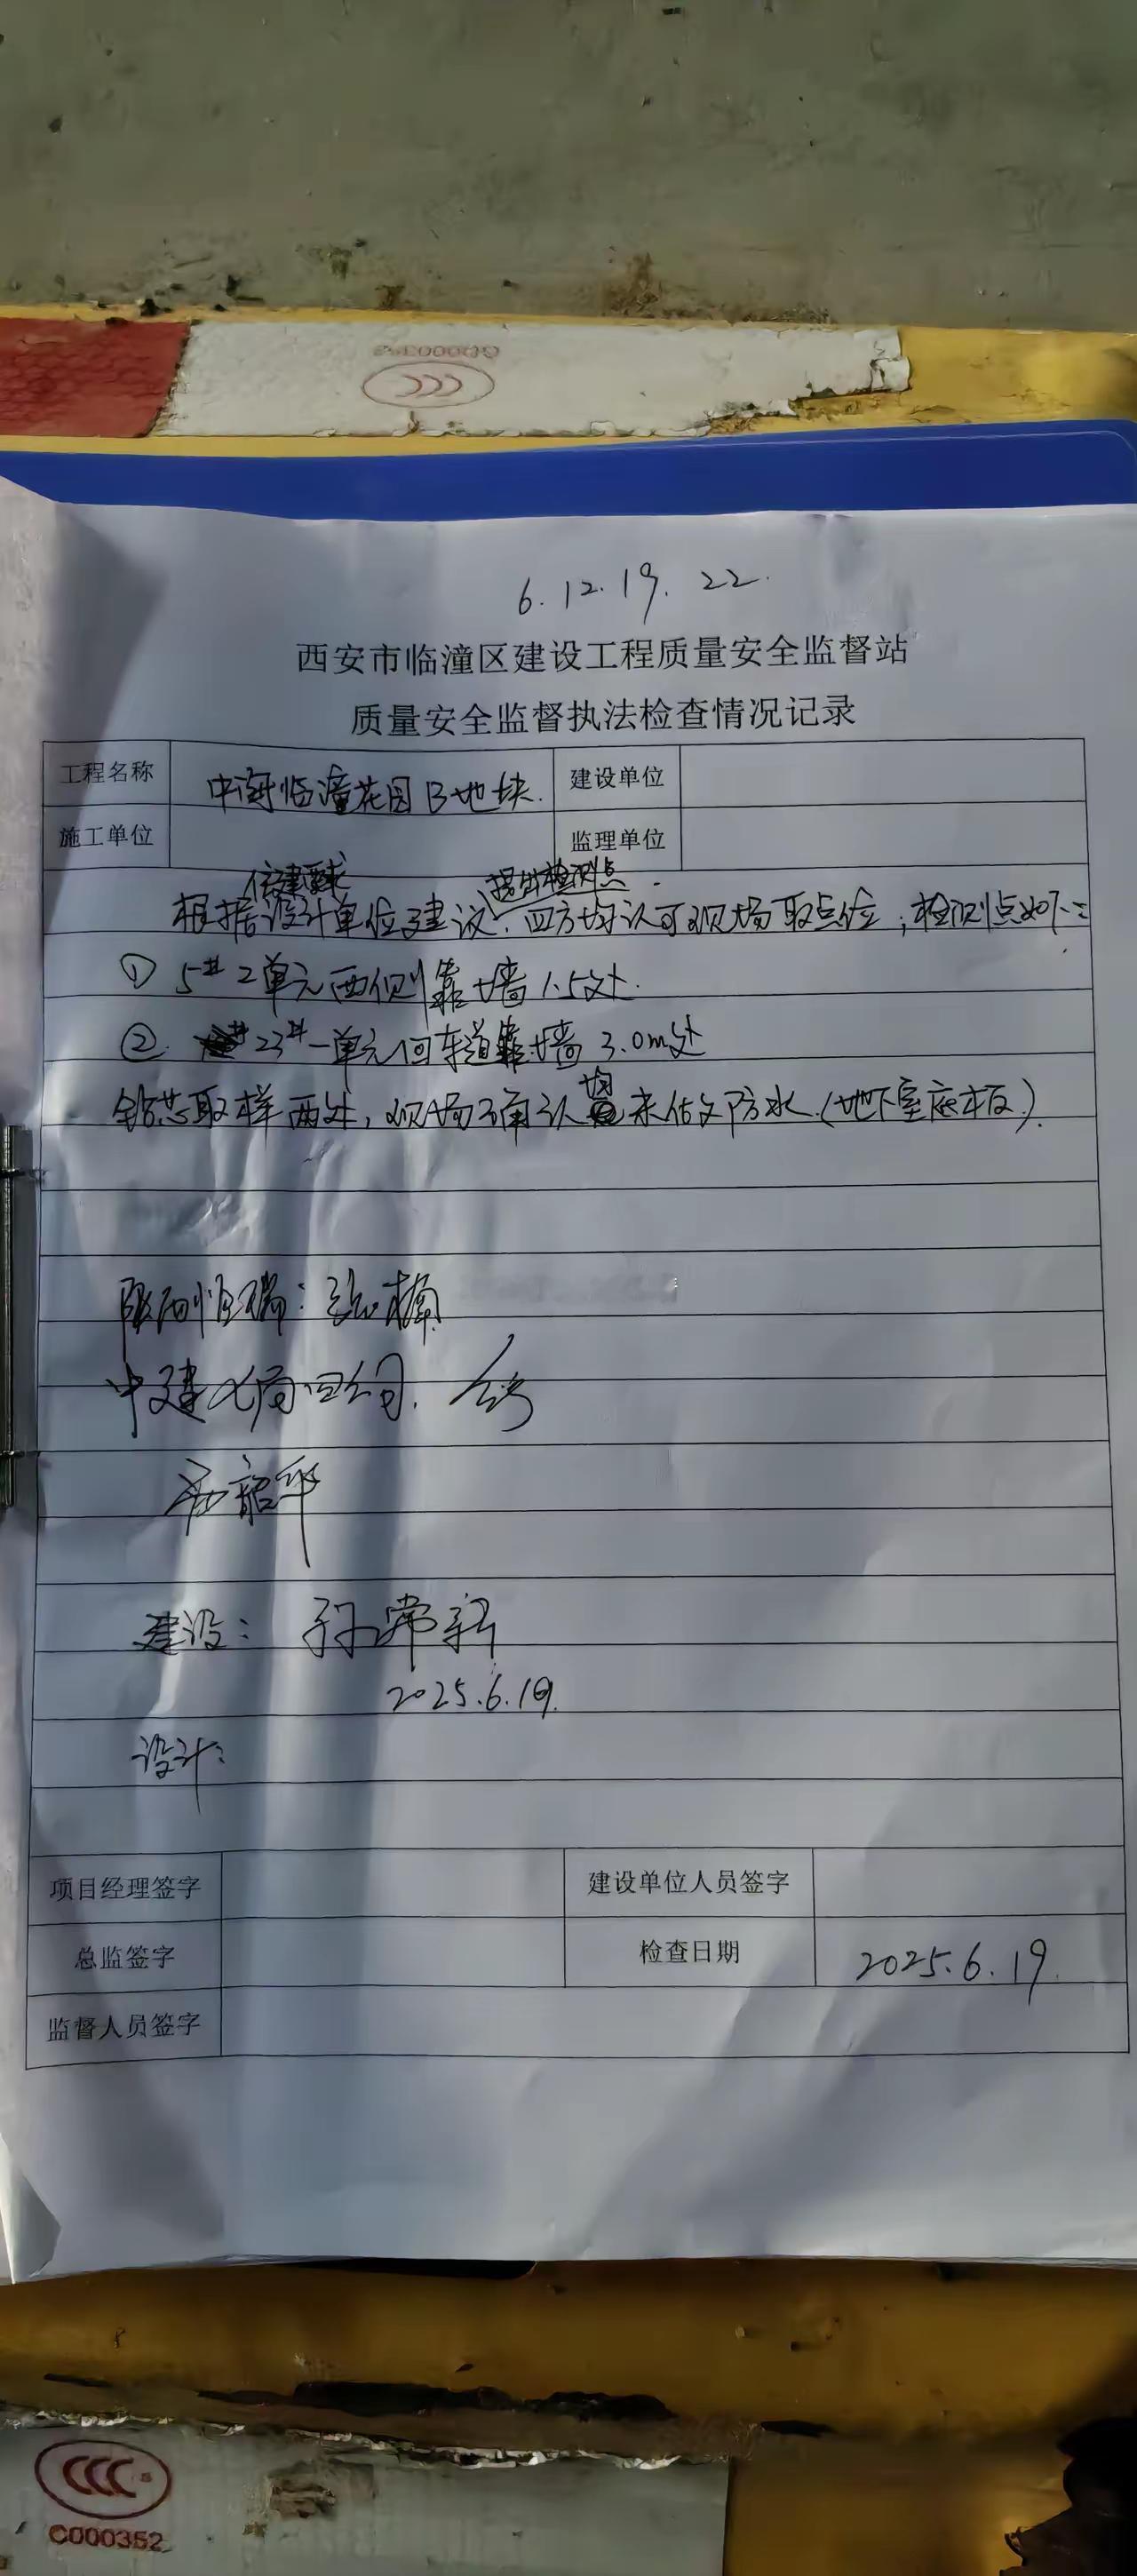 CCC
6.12.19.22.
西安市临潼区建设工程质量安全监督站
质量安全监督执法检查情况记录
工程名称 中海临潼花园B地块. 建设单位
施工单位 监理单位
住建要求 提出检测点.
根据设计单位建议,四方均认可现场取点位;检测点如下:
① 5# 2单元西侧靠墙1.5处.
② 23#一单元回车道靠墙3.0m处
钻芯取样两处,现场确认均未做防水(地下室底板).
陕西恒瑞:
中建七局四公司.
建设:
2025.6.19.
设计:
项目经理签字 建设单位人员签字
总监签字 检查日期 2025.6.19.
监督人员签字
CCC S
C000352